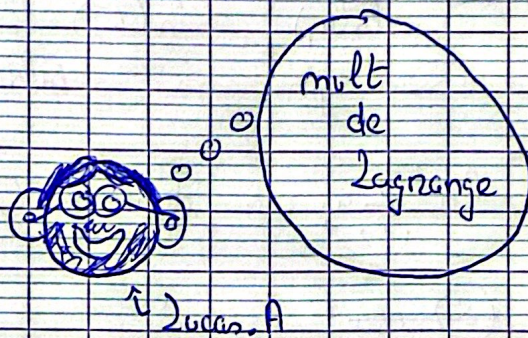 mult
de
Lagrange
Lucas. A